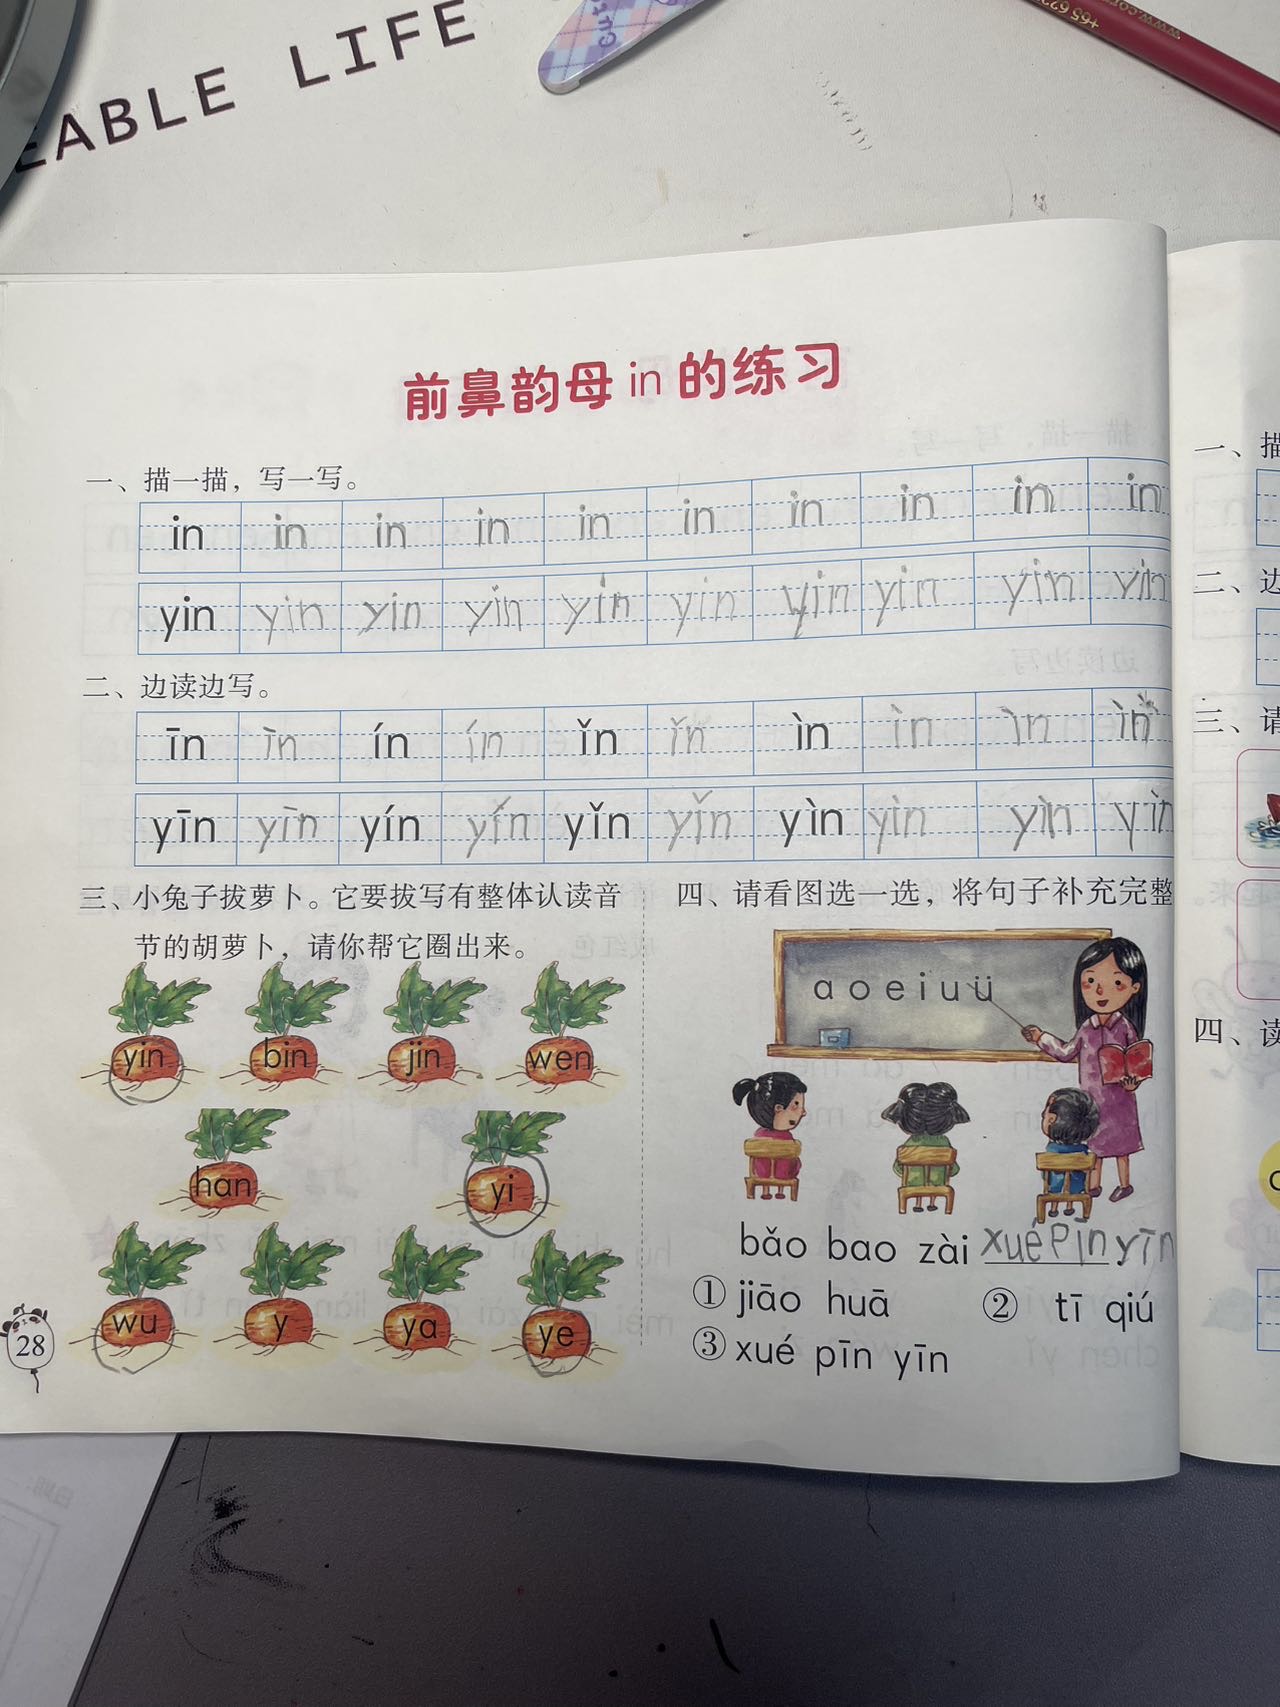 EABLE LIFE
cute
+65 62
www.cor
前鼻韵母 in 的练习
一、描一描，写一写。
in in in in in in in in in in
yin yin yin yin yin yin yin yin yin yin
二、边读边写。
īn īn ín ín ǐn ǐn ìn ìn ìn ìn
yīn yīn yín yín yǐn yǐn yìn yìn yìn yìn
三、小兔子拔萝卜。它要拔写有整体认读音
节的胡萝卜，请你帮它圈出来。
yin bin jin wen
han yi
wu y ya ye
28
四、请看图选一选，将句子补充完整
a o e i u ü
bǎo bao zài xué pīn yīn
① jiāo huā ② tī qiú
③ xué pīn yīn
一、描
二、边
三、请
四、读